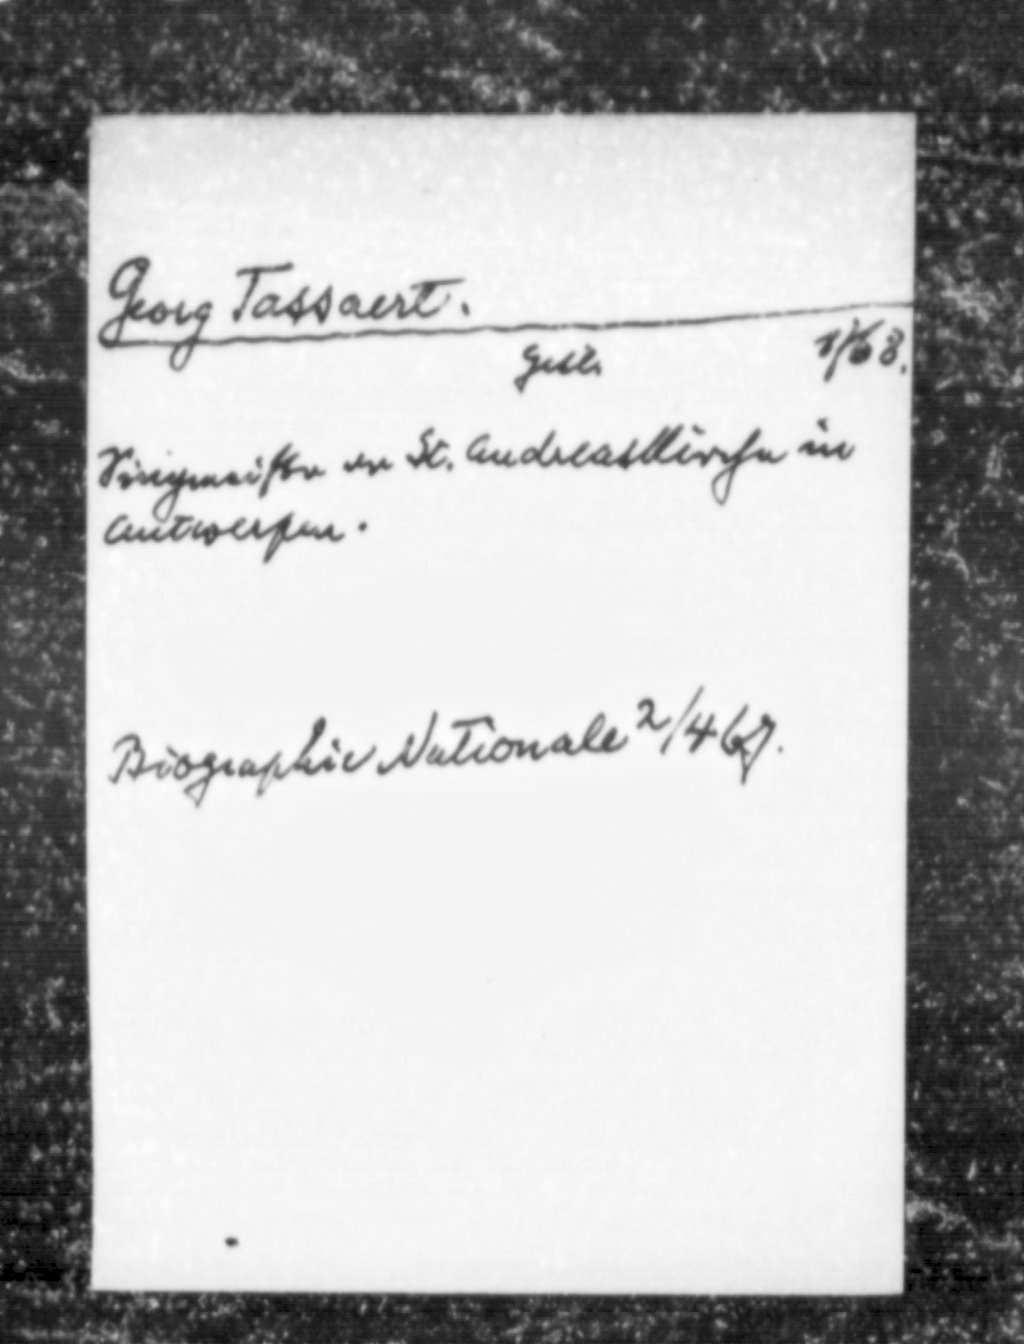 Georg Tassaert.
Gest. 1768.
Singmeister der St. Andreaskirche in
Antwerpen.
Biographie Nationale 2/467.